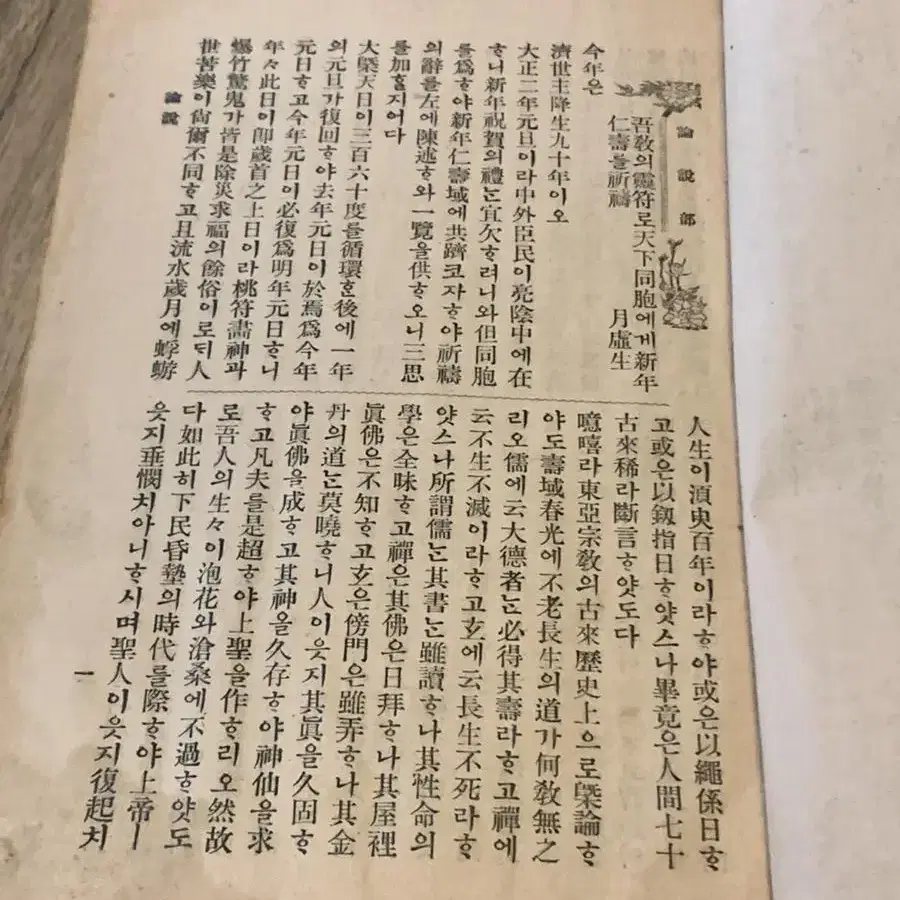 論說部
吾敎의靈符로天下同胞에게新年
仁壽를祈禱
月虛生
今年은
濟世主降生九十年이오
大正二年元旦이라中外臣民이亮陰中에在
ᄒᆞ니新年祝賀의禮ᄂᆞᆫ宜欠ᄒᆞ려니와但同胞
를爲ᄒᆞ야新年仁壽域에共躋코자ᄒᆞ야祈禱
의辭를左에陳述ᄒᆞ와一覽을供ᄒᆞ오니三思
를加ᄒᆞᆯ지어다
大槩天日이三百六十度를循環ᄒᆞᆫ後에一年
의元旦가復回ᄒᆞ야去年元日이於焉爲今年
元日ᄒᆞ고今年元日이必復爲明年元日ᄒᆞ니
年々此日이卽歲首之上日이라桃符畵神과
爆竹驚鬼가皆是除災求福의餘俗이로ᄃᆡ人
世苦樂이尙爾不同ᄒᆞ고且流水歲月에蜉蝣
人生이湏臾百年이라ᄒᆞ야或은以繩係日ᄒᆞ
고或은以釰指日ᄒᆞ얏스나畢竟은人間七十
古來稀라斷言ᄒᆞ얏도다
噫嘻라東亞宗敎의古來歷史上으로槩論ᄒᆞ
야도壽域春光에不老長生의道가何敎無之
리오儒에云大德者ᄂᆞᆫ必得其壽라ᄒᆞ고禪에
云不生不滅이라ᄒᆞ고玄에云長生不死라ᄒᆞ
얏스나所謂儒ᄂᆞᆫ其書ᄂᆞᆫ雖讀ᄒᆞ나其性命의
學은全昧ᄒᆞ고禪은其佛은日拜ᄒᆞ나其屋裡
眞佛은不知ᄒᆞ고玄은傍門은雖弄ᄒᆞ나其金
丹의道ᄂᆞᆫ莫曉ᄒᆞ니人이읏지其眞을久固ᄒᆞ
야眞佛을成ᄒᆞ고其神을久存ᄒᆞ야神仙을求
ᄒᆞ고凡夫를是超ᄒᆞ야上聖을作ᄒᆞ리오然故
로吾人의生々이泡花와滄桑에不過ᄒᆞ얏도
다如此히下民昏墊의時代를際ᄒᆞ야上帝ㅣ
읏지垂憫치아니ᄒᆞ시며聖人이읏지復起치
論說
一